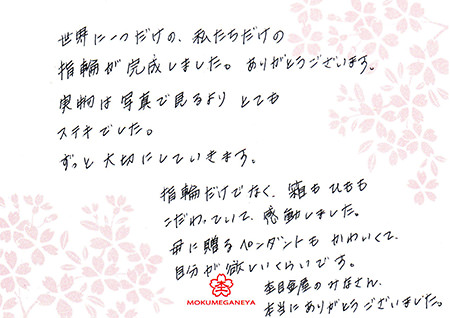 世界に一つだけの、私たちだけの
指輪が完成しました。ありがとうございます。
実物は写真で見るより とても
ステキでした。
ずっと大切にしていきます。
指輪だけでなく、箱もひもも
こだわっていて、感動しました。
母に贈るペンダントも かわいくて、
自分が欲しいくらいです。
杢目金屋のみなさん、
本当にありがとうございました。
杢
MOKUMEGANEYA